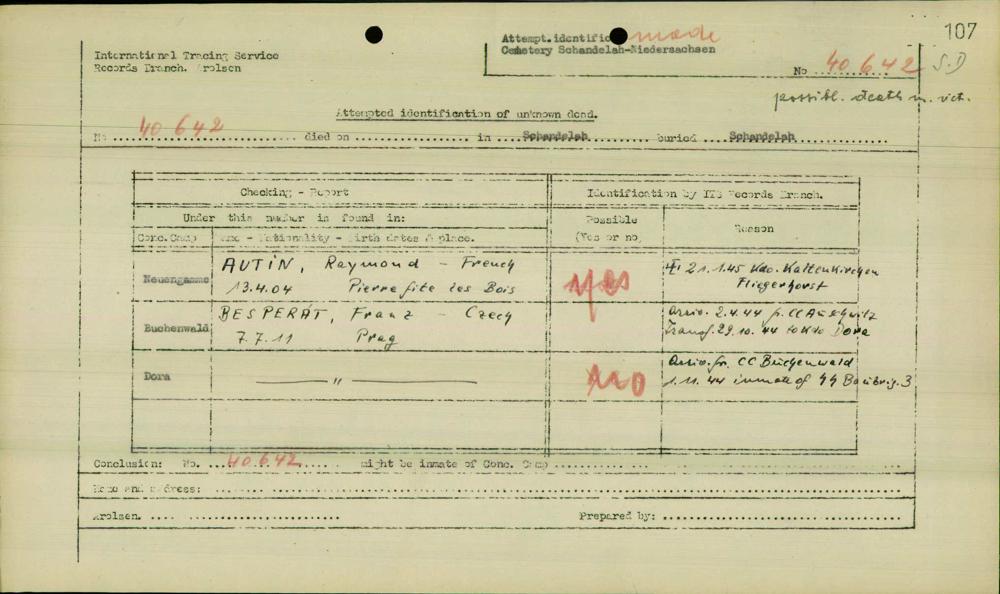 107
Attempt.identific made
Cemetery Schandelah-Niedersachsen
International Tracing Service
Records Branch. Arolsen
No ..40642.. S.D
possibl. death m. vict.
Attempted identification of unknown dead.
No ...40 642............... died on .................. in ....Schandelah....... buried ..Schandelah...............
Checking - Report
Identification by ITS Records Branch.
Under this number is found in:
Possible
(Yes or no)
Reason
Conc.Camp
Name - Nationality - Birth dates & place.
Neuengamme
AUTIN, Raymond - French
13.4.04 Pierrefite les Bois
yes
21.1.45 Kdo. Kaltenkirchen
Fliegerhorst
Buchenwald
BESPERÁT, Franz - Czech
7.7.11 Prag
Arriv. 2.4.44 fr. CC Auschwitz
Transf. 29.10.44 to Kdo Dora
Dora
———— " ————
no
Arriv. fr. CC Buchenwald
1.11.44 inmate of SS Baubrig. 3
Conclusion: No. ...40642...... might be inmate of Conc. Camp ................
Name and address: ................................
Arolsen. ........................
Prepared by: ................................